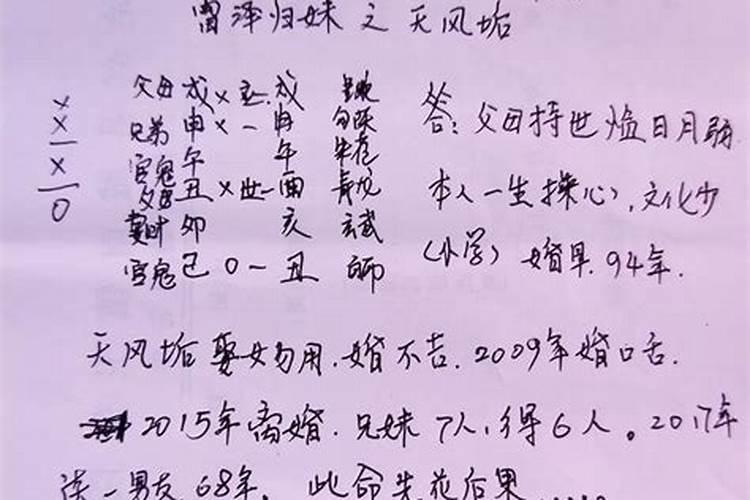 雷泽归妹之天风垢
× 父母戌×应戌 答:父母持世临日月破
× 兄弟申×一申 勾
一 官鬼午 午
× 父母丑×世一酉 青龙 本人一生操心,文化少
一 妻财卯 亥 玄武
0 官鬼己0一丑 (小学)婚早.94年.
天风垢娶女勿用.婚不吉.2009年婚口舌.
2015年离婚.兄妹7人,得6人。2017年
一男友68年,此命先花后果.....